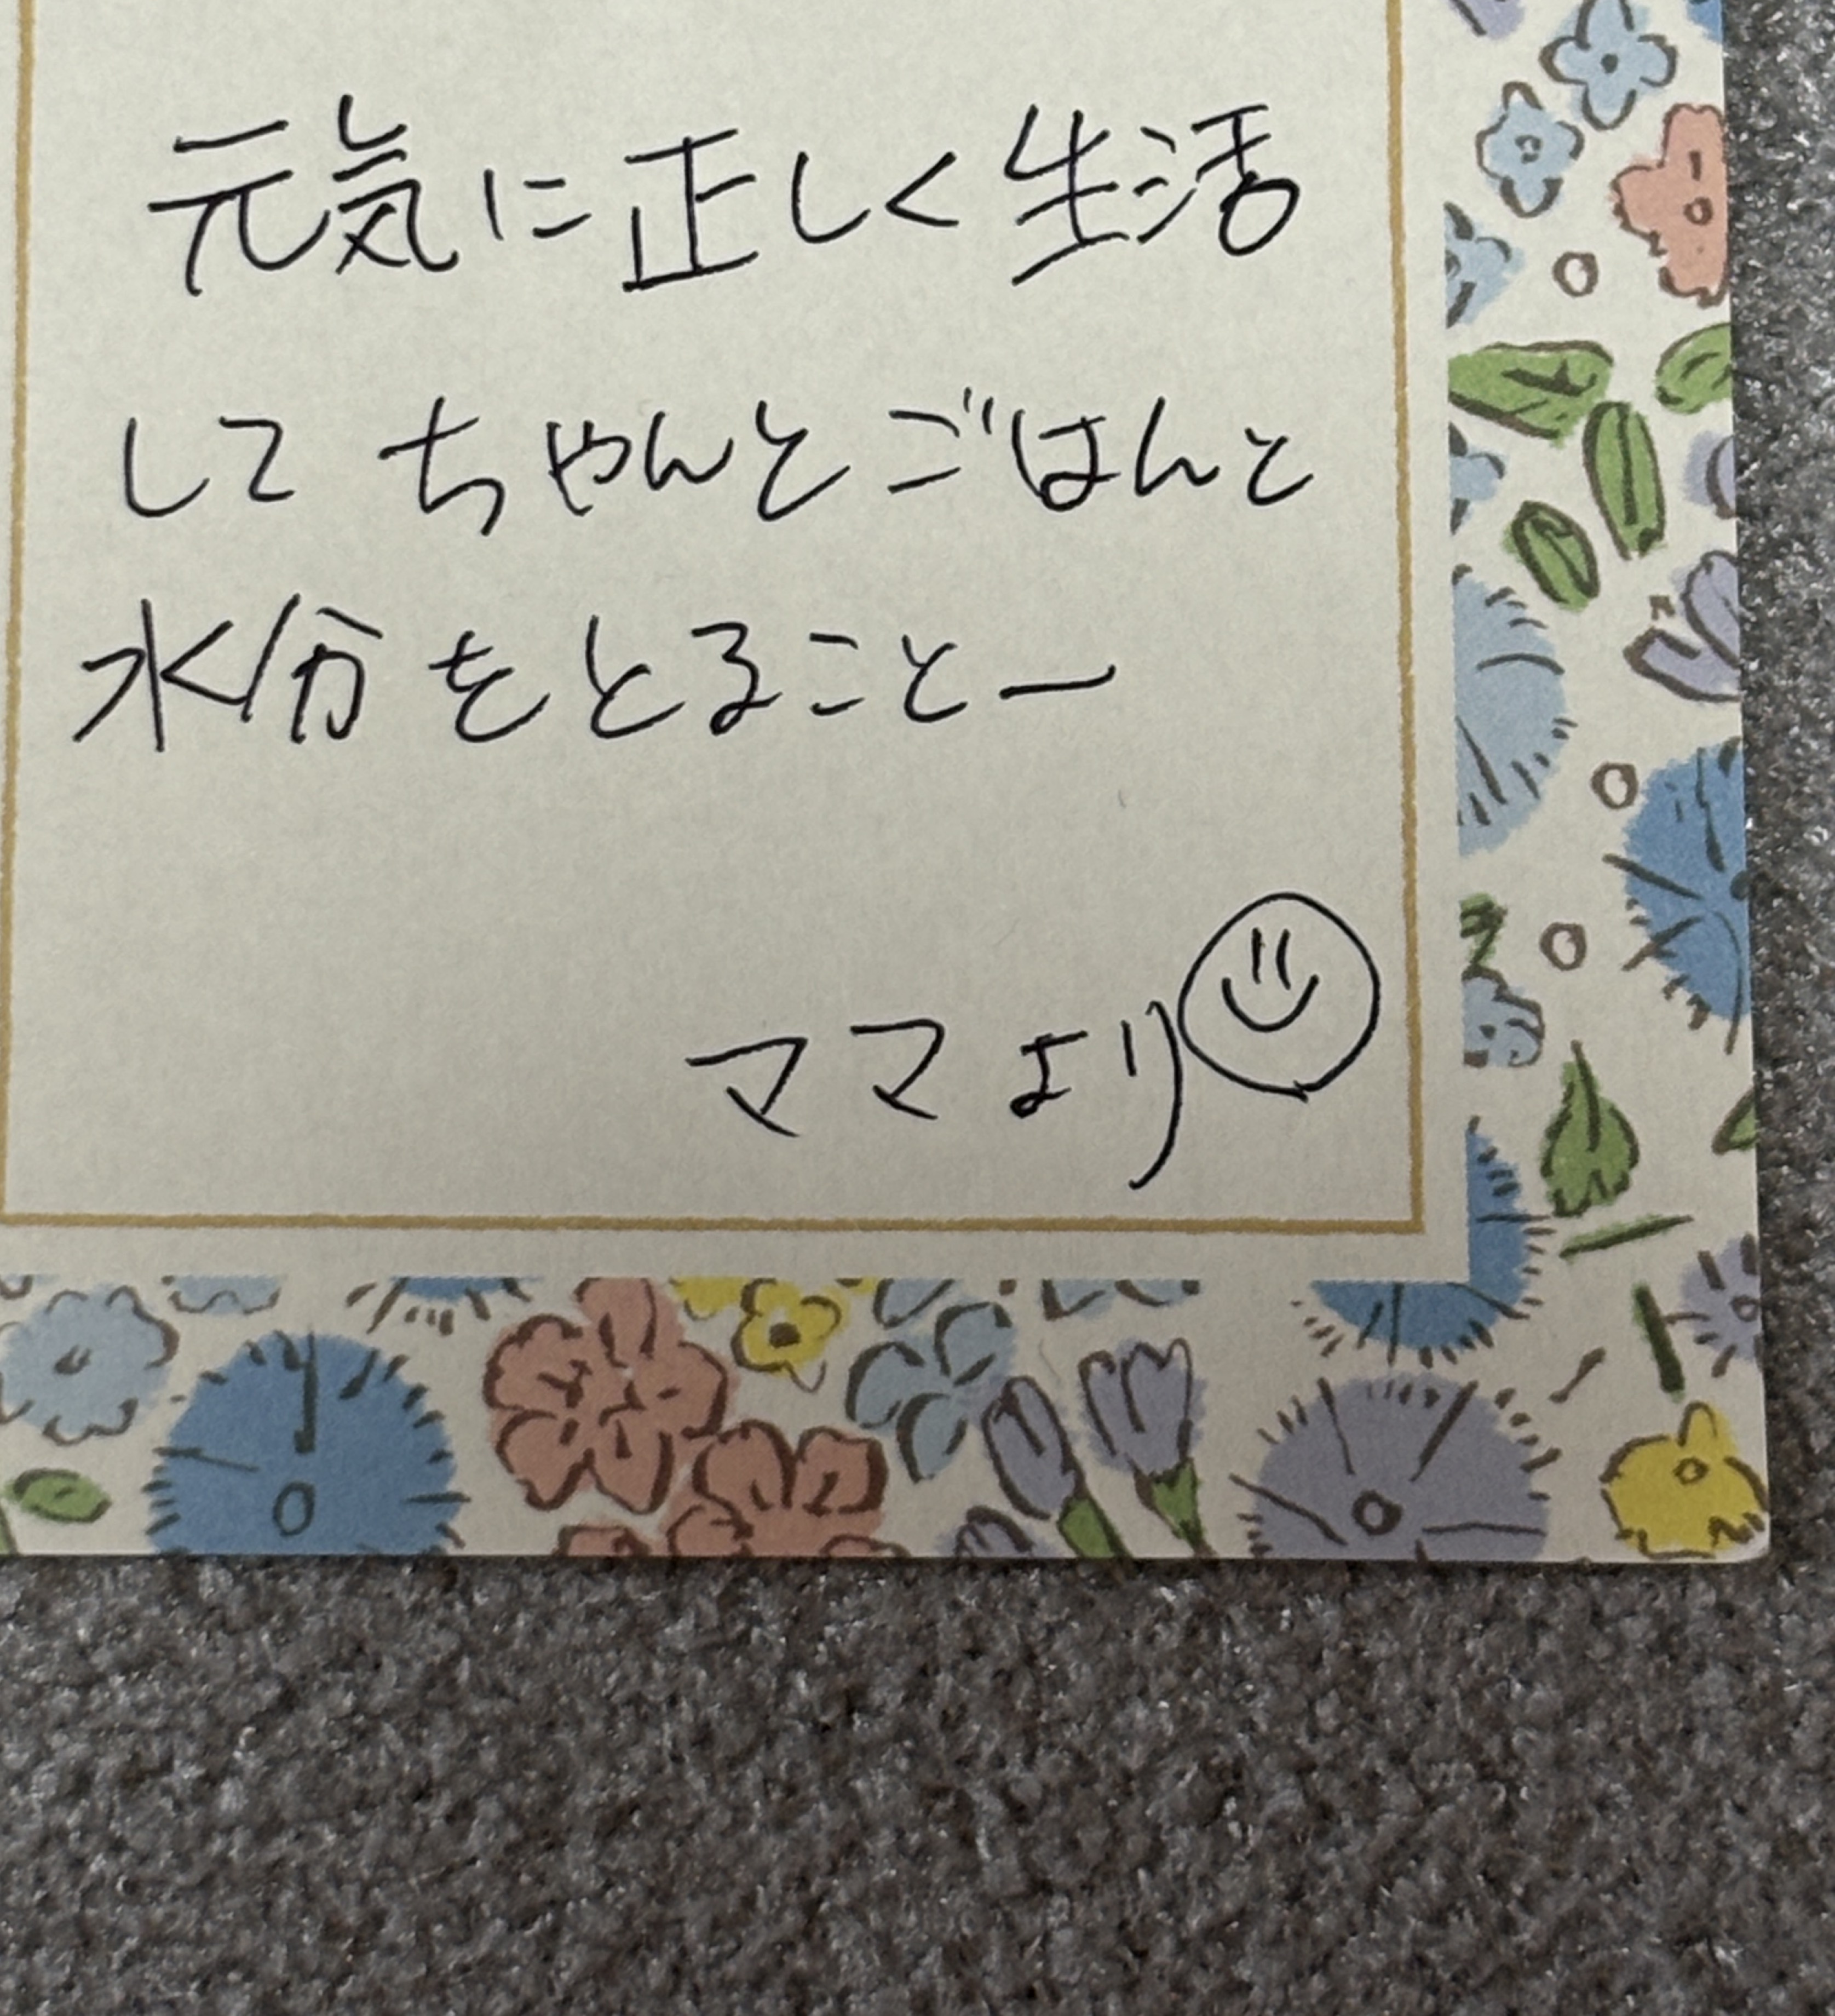 元気に正しく生活
して ちゃんとごはんと
水分をとることー
ママより